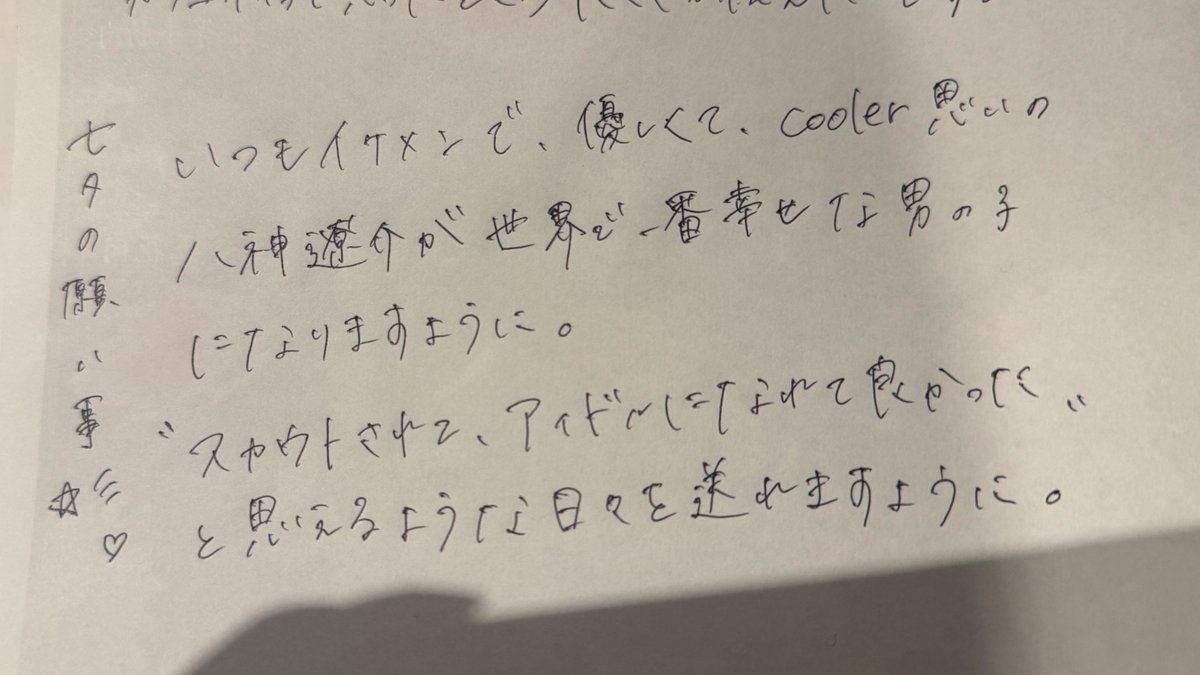 七夕の願い事
いつもイケメンで、優しくて、cooler思いの
八神遼介が世界で一番幸せな男の子
になりますように。
"スカウトされて、アイドルになれて良かった"
と思えるような日々を送れますように。